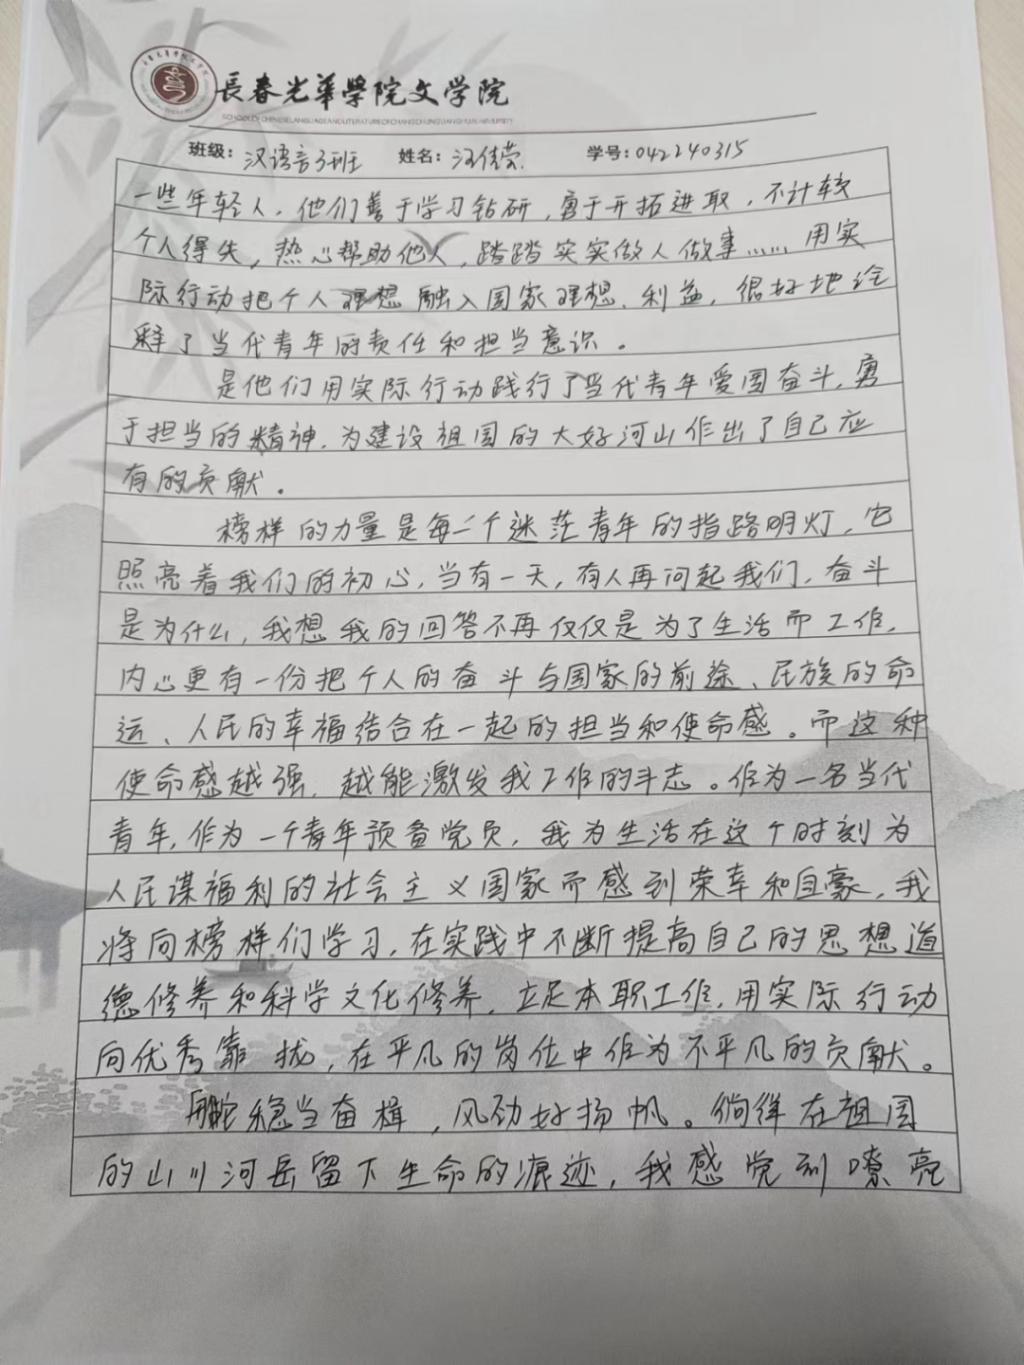 長春光華學院文学院
SCHOOL OF CHINESE LANGUAGE AND LITERATURE OF CHANGCHUN GUANGHUA UNIVERSITY
班级: 汉语言3班 姓名: 汪佳荣 学号: 042240315
一些年轻人,他们善于学习钻研,勇于开拓进取,不计较
个人得失,热心帮助他人,踏踏实实做人做事……用实
际行动把个人理想融入国家理想、利益,很好地诠
释了当代青年的责任和担当意识。
是他们用实际行动践行了当代青年爱国奋斗、勇
于担当的精神,为建设祖国的大好河山作出了自己应
有的贡献。
榜样的力量是每一个迷茫青年的指路明灯,它
照亮着我们的初心,当有一天,有人再问起我们,奋斗
是为什么,我想我的回答不再仅仅是为了生活而工作,
内心更有一份把个人的奋斗与国家的前途、民族的命
运、人民的幸福结合在一起的担当和使命感。而这种
使命感越强,越能激发我工作的斗志。作为一名当代
青年,作为一个青年预备党员,我为生活在这个时刻为
人民谋福利的社会主义国家而感到荣幸和自豪,我
将向榜样们学习,在实践中不断提高自己的思想道
德修养和科学文化修养,立足本职工作,用实际行动
向优秀靠拢,在平凡的岗位中作为不平凡的贡献。
舵稳当奋楫,风劲好扬帆。徜徉在祖国
的山川河岳留下生命的痕迹,我感觉到嘹亮